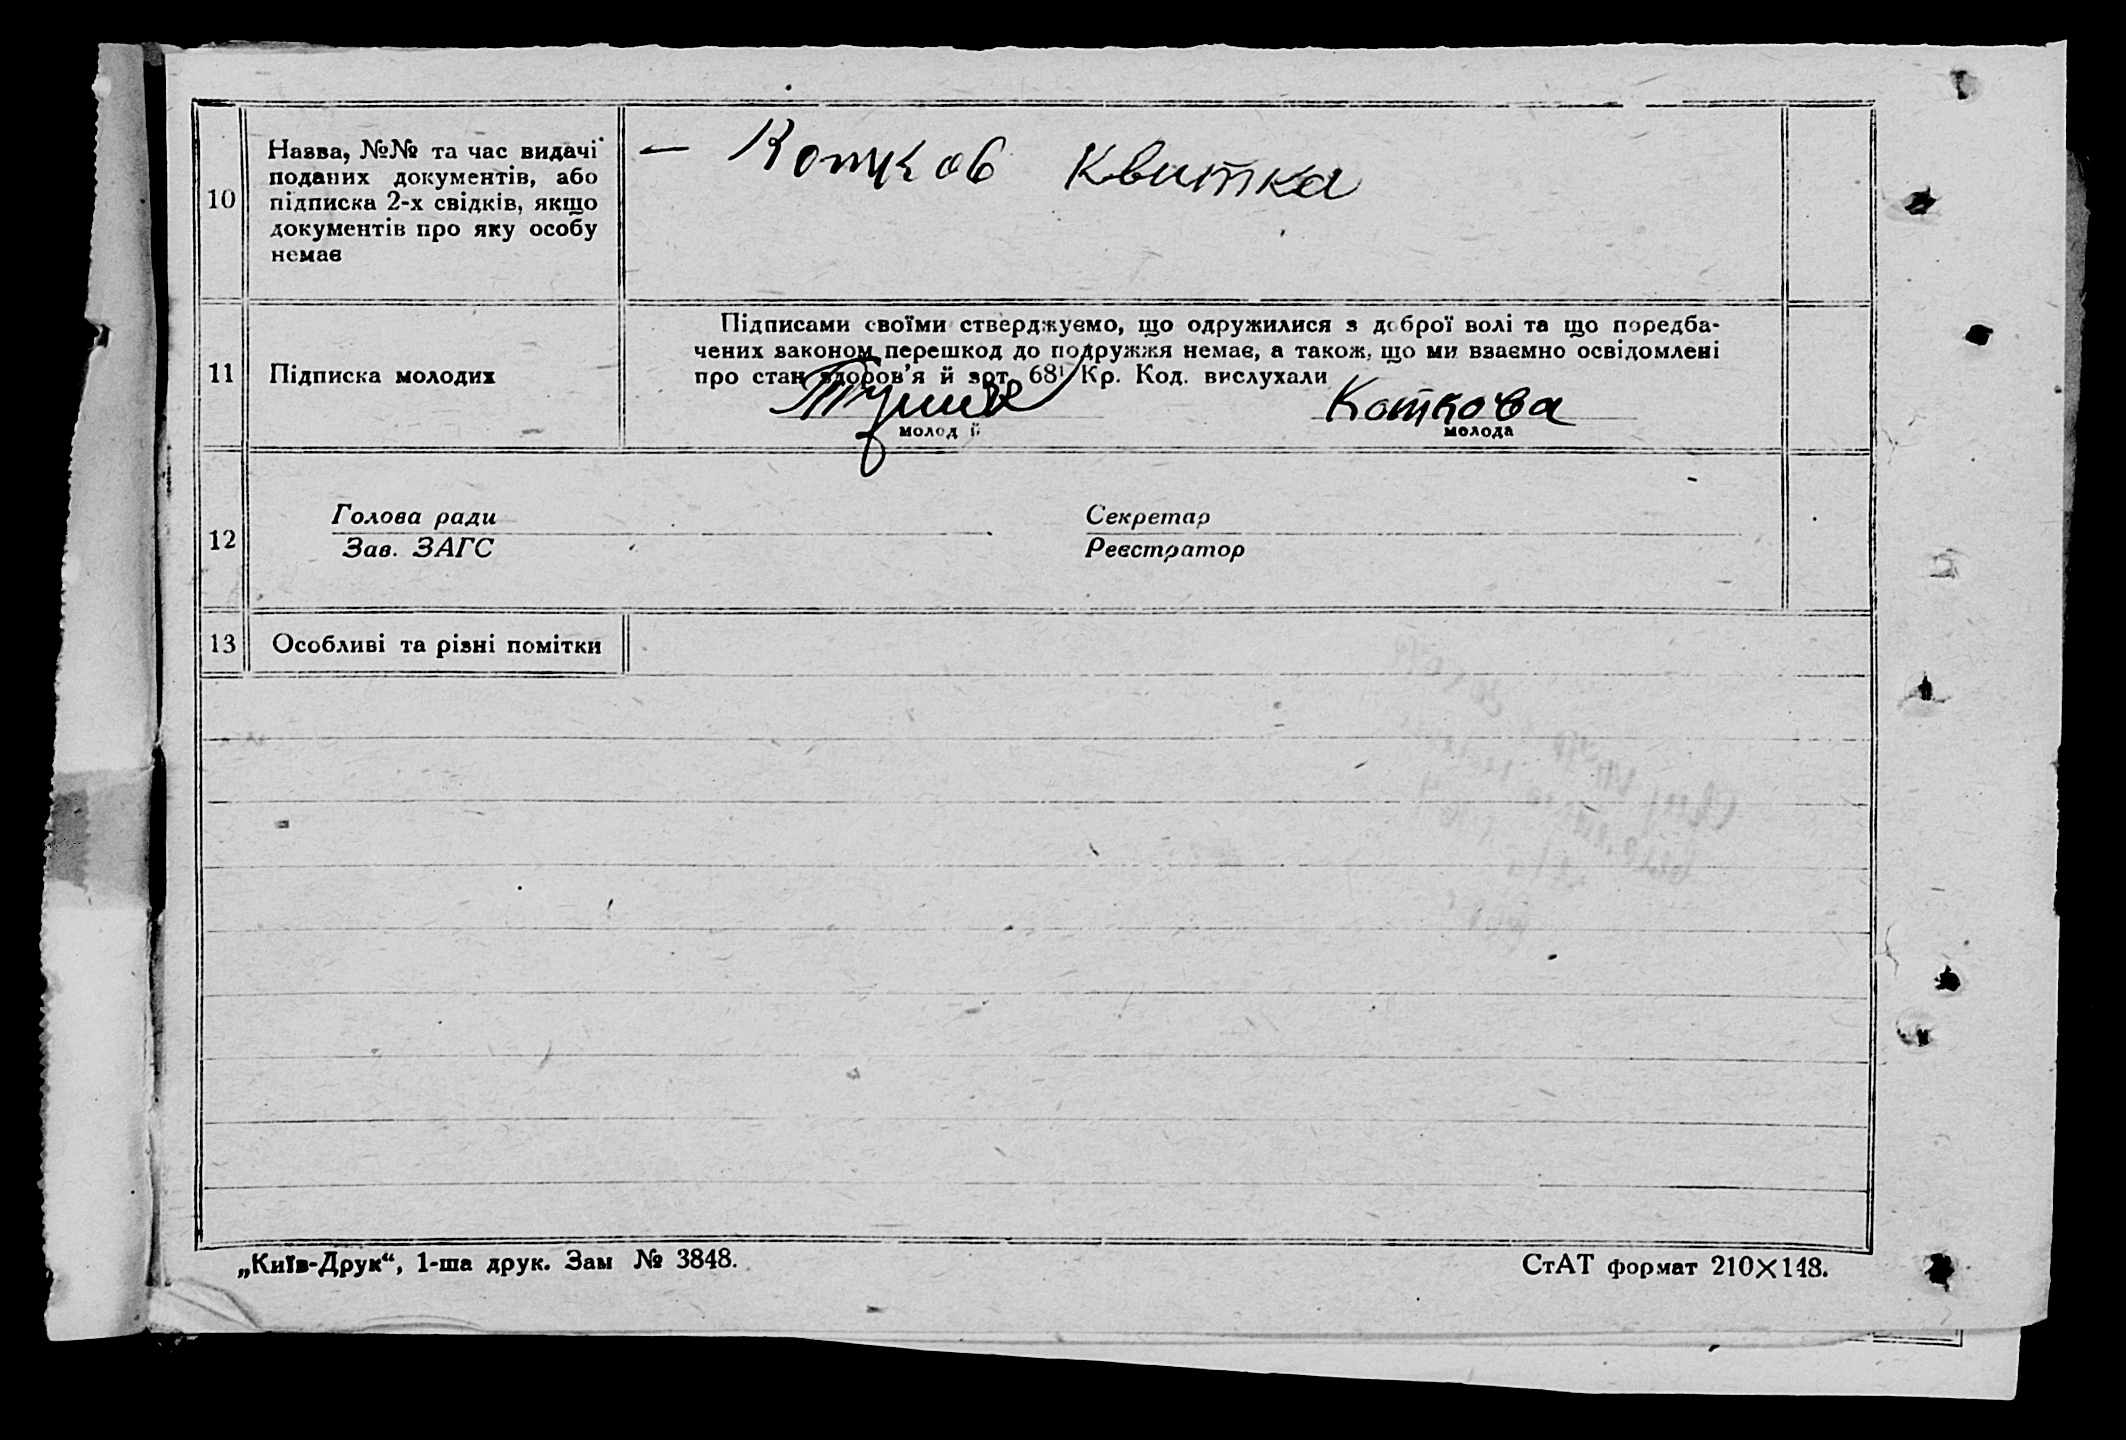 10
Назва, №№ та час видачі
поданих документів, або
підписка 2-х свідків, якщо
документів про яку особу
немає
— квитка
11
Підписка молодих
Підписами своїми стверджуємо, що одружилися з доброї волі та що поредба-
чених законом перешкод до подружжя немає, а також, що ми взаємно освідомлені
про стан здоров'я й арт. 68¹ Кр. Код. вислухали
Коткова
молод й
молода
12
Голова ради
Зав. ЗАГС
Секретар
Реєстратор
13
Особливі та різні помітки
„Київ-Друк“, 1-ша друк. Зам № 3848.
СтАТ формат 210×148.